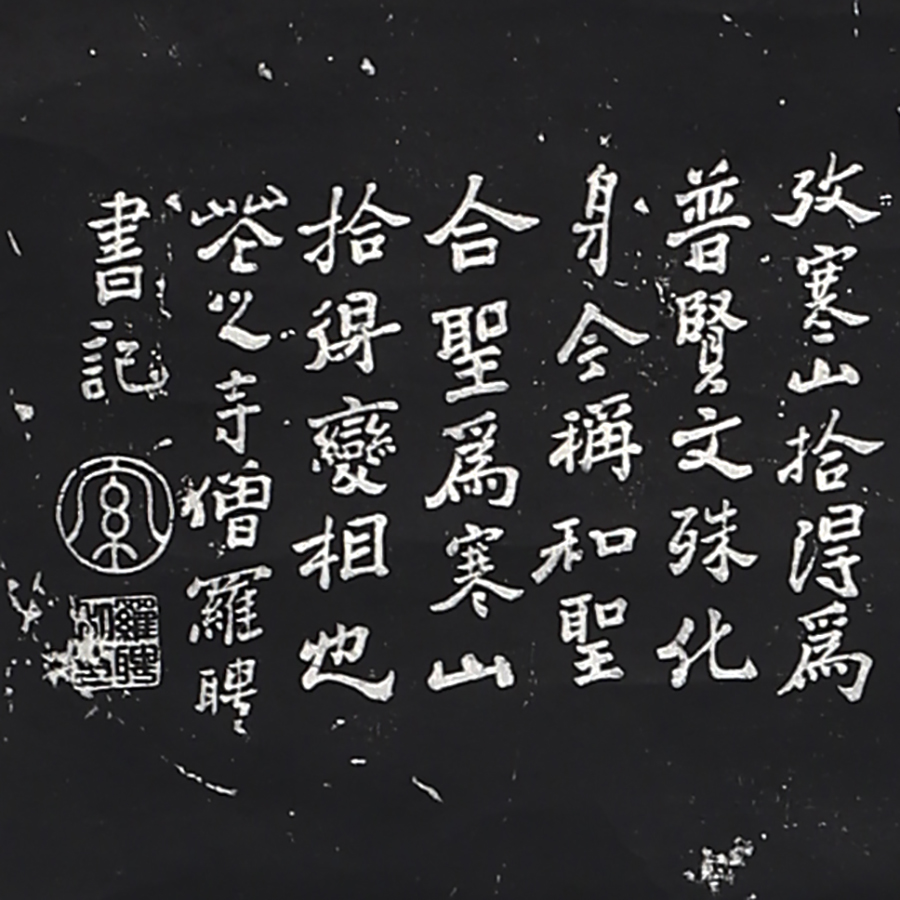 攷寒山拾得爲
普賢文殊化
身今稱和聖
合聖爲寒山
拾得變相也
花之寺僧羅聘
書記
羅聘